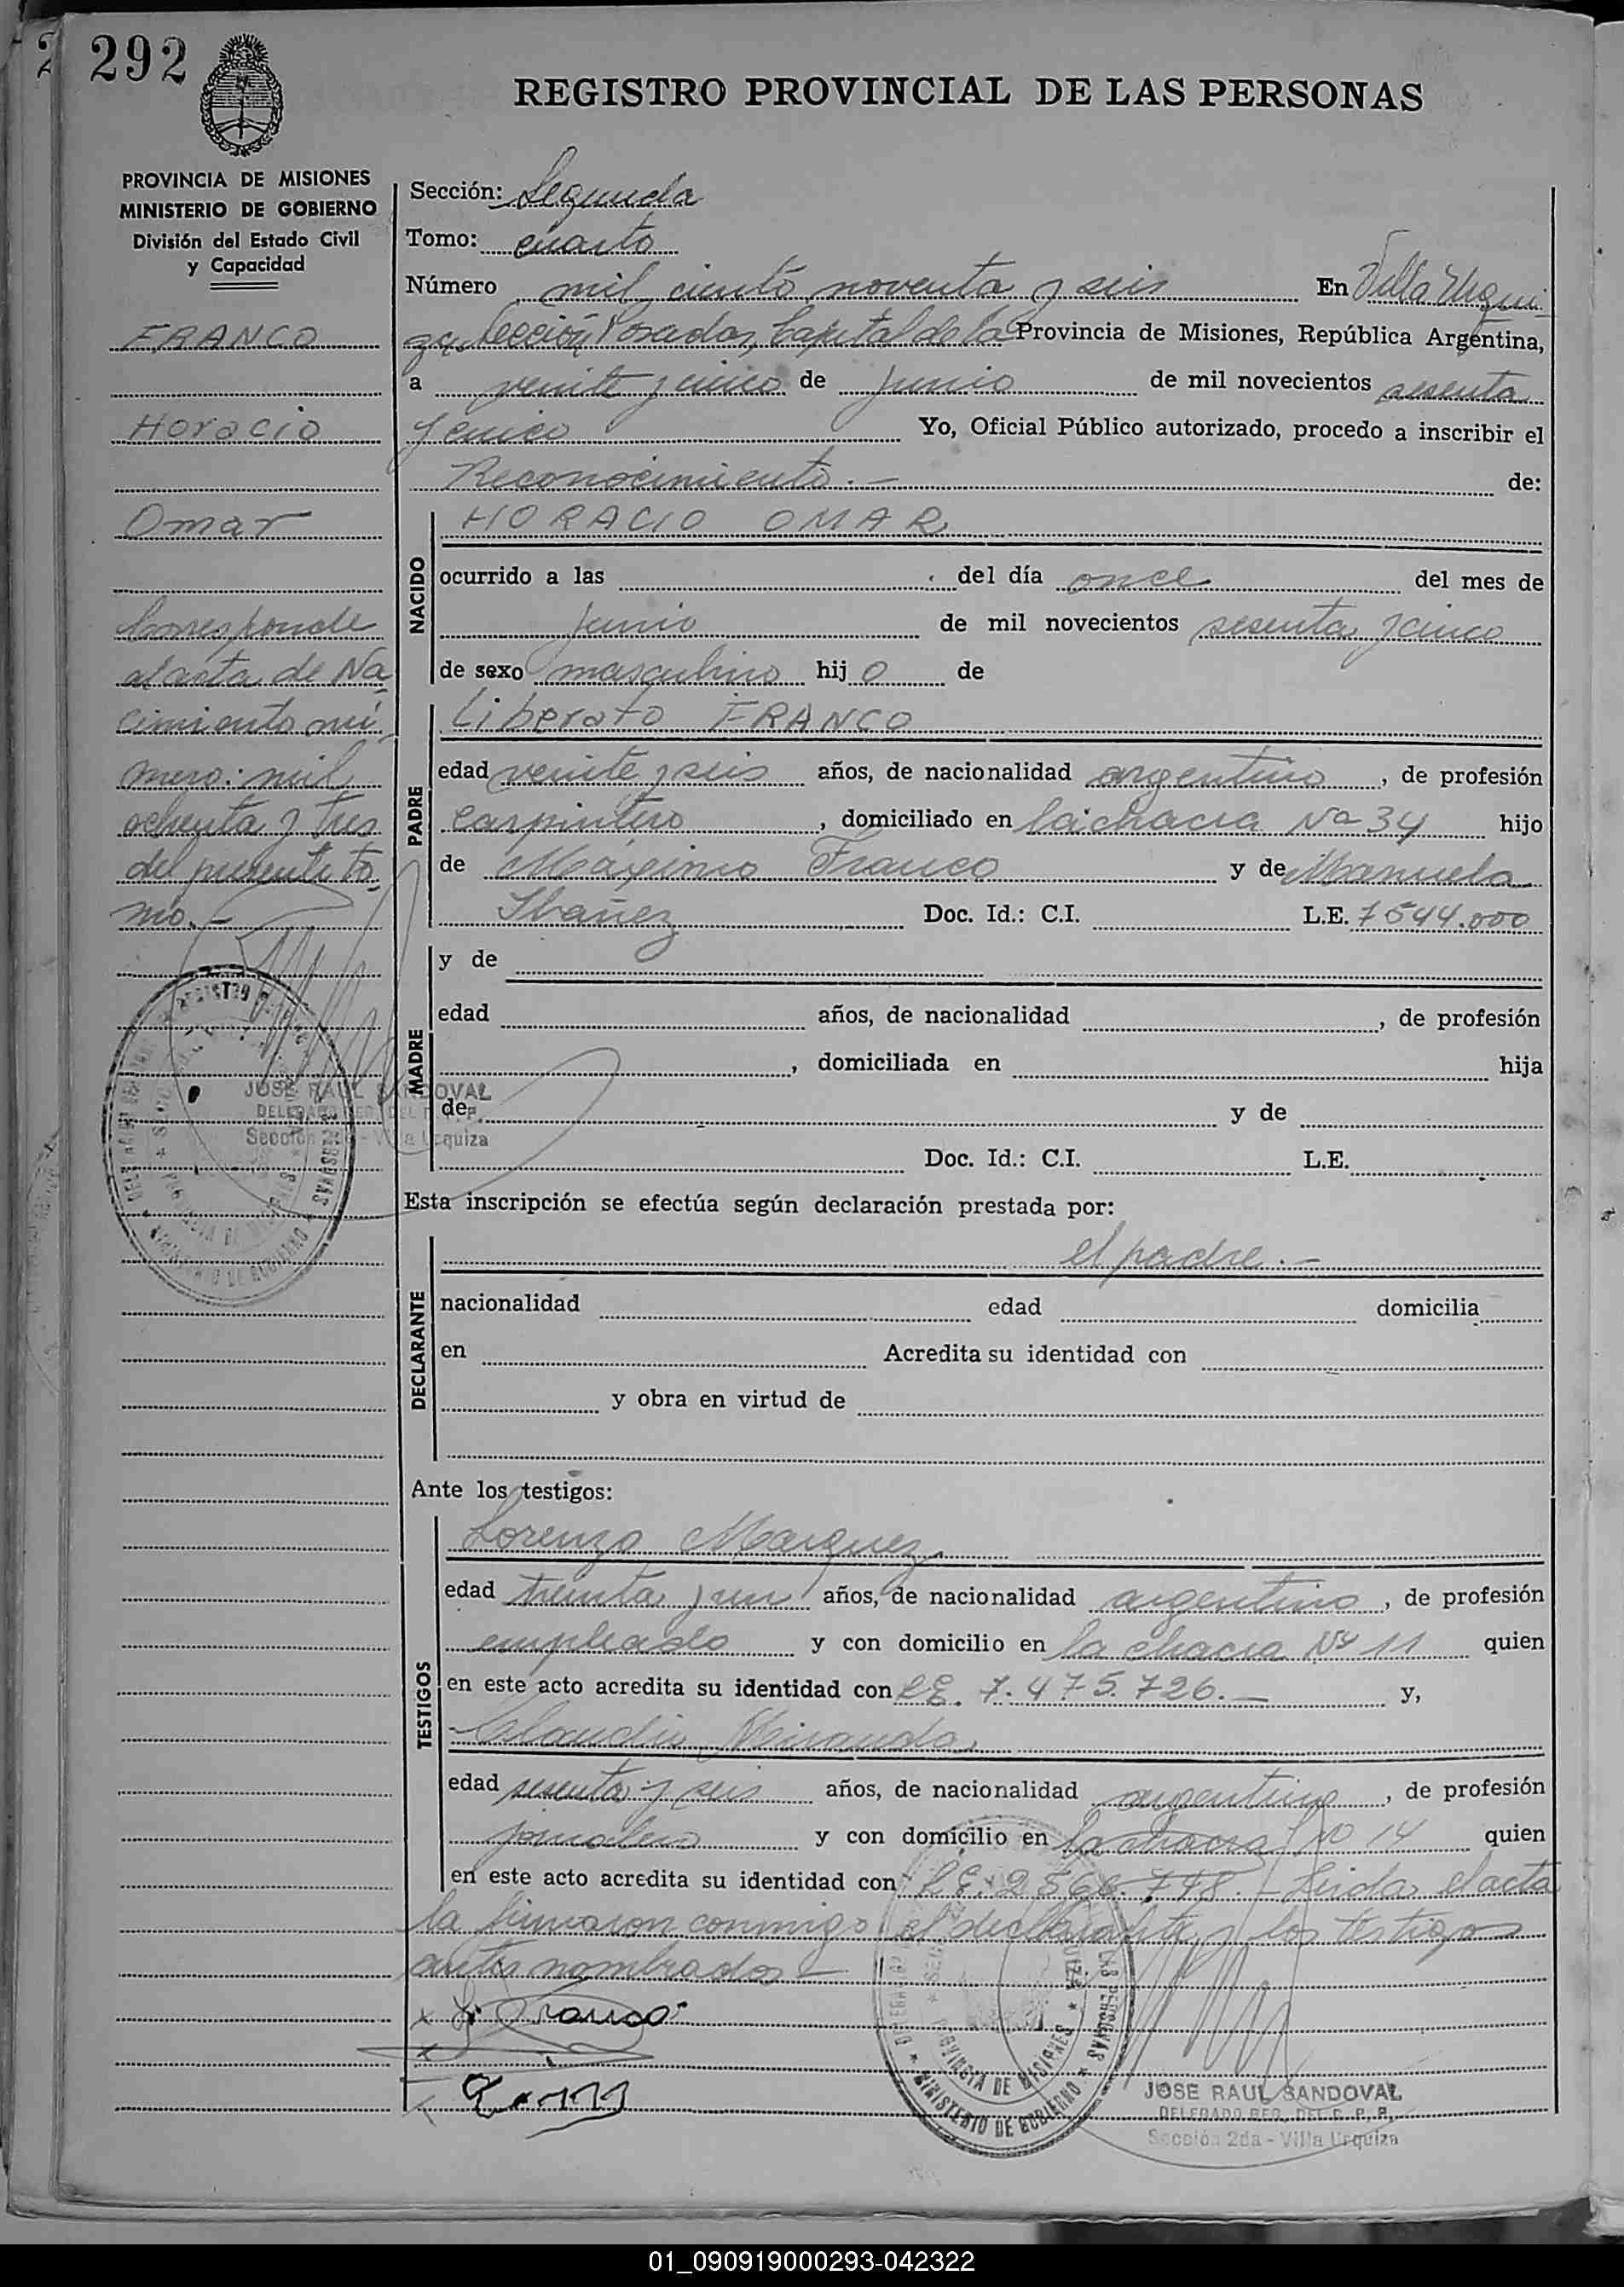 292
REGISTRO PROVINCIAL DE LAS PERSONAS
PROVINCIA DE MISIONES
MINISTERIO DE GOBIERNO
División del Estado Civil
y Capacidad
FRANCO
Horacio
Omar
Corresponde
al acta de Na-
cimiento nú-
mero: mil
ochenta y tres
del presente to-
mo.-
Sección: Segunda
Tomo: cuarto
Número mil ciento noventa y seis En Villa Urqui-
za, Sección Posadas, Capital de la Provincia de Misiones, República Argentina,
a veinte y cinco de junio de mil novecientos sesenta
y cinco Yo, Oficial Público autorizado, procedo a inscribir el
Reconocimiento.- de:
NACIDO
HORACIO OMAR
ocurrido a las del día once del mes de
junio de mil novecientos sesenta y cinco
de sexo masculino hij o de
PADRE
Liberato FRANCO
edad veinte y seis años, de nacionalidad argentino, de profesión
carpintero, domiciliado en la chacra Nº 34 hijo
de Máximo Franco y de Manuela
Ibañez Doc. Id.: C.I. L.E. 7544.000
MADRE
y de
edad años, de nacionalidad , de profesión
, domiciliada en hija
de y de
Doc. Id.: C.I. L.E.
JOSE RAUL SANDOVAL
Esta inscripción se efectúa según declaración prestada por:
DECLARANTE
el padre.-
nacionalidad edad domicilia
en Acredita su identidad con
y obra en virtud de
Ante los testigos:
TESTIGOS
Lorenzo Marquez
edad treinta y un años, de nacionalidad argentino, de profesión
empleado y con domicilio en la chacra Nº 11 quien
en este acto acredita su identidad con L.E. 7.475.726.- y,
Claudio Miranda
edad sesenta y seis años, de nacionalidad argentino, de profesión
jornalero y con domicilio en la chacra Nº 14 quien
en este acto acredita su identidad con L.E. 2566.748.- Leida el acta
la firmaron conmigo el declarante y los testigos
antes nombrados-
Franco
PROVINCIA DE MISIONES
MINISTERIO DE GOBIERNO
JOSE RAUL SANDOVAL
Sección 2da - Villa Urquiza
01_090919000293-042322